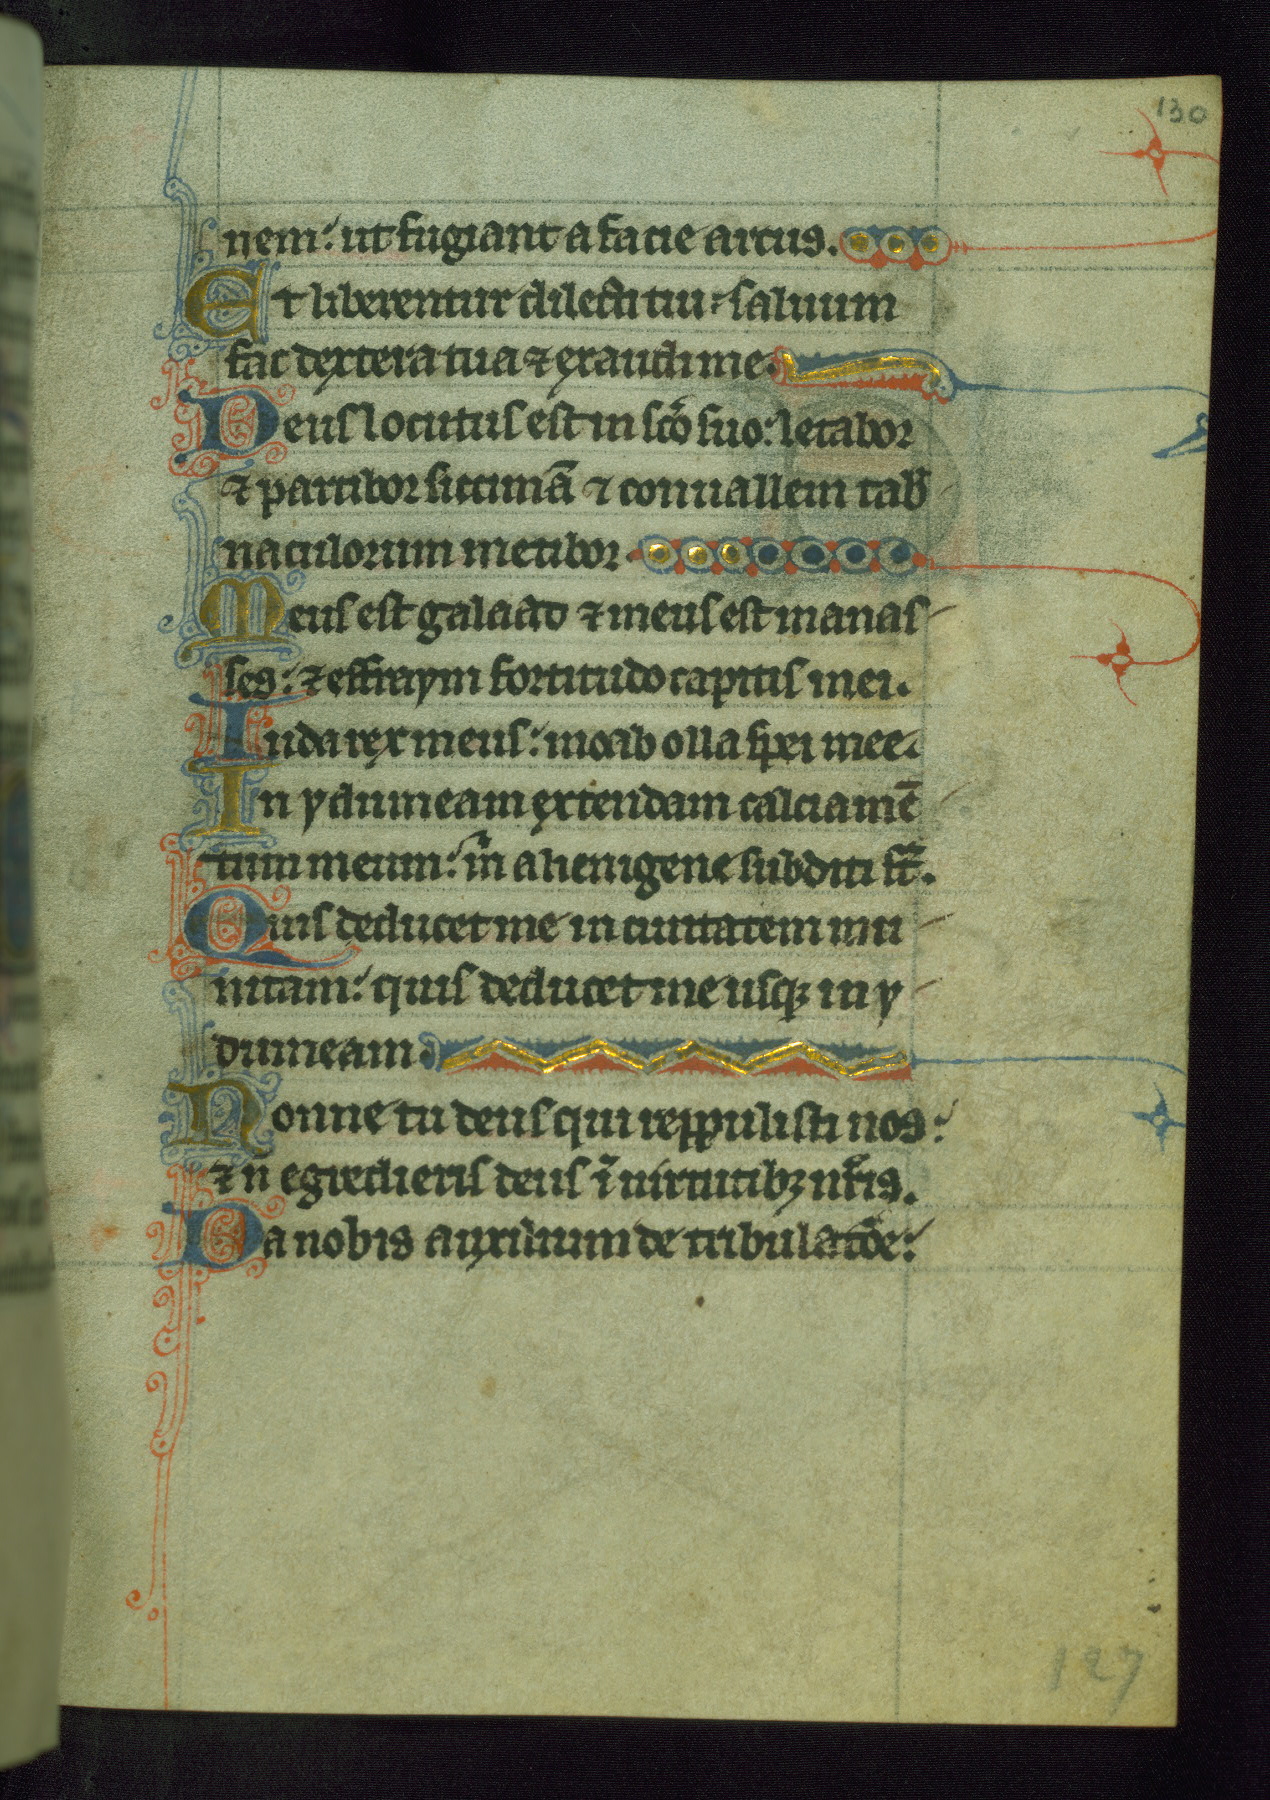 130
nem: ut fugiant a facie arcus.
Et liberentur dilecti tui: saluum
fac dextera tua ⁊ exaudi me.
Deus locutus est in sc̄o suo: letabor
⁊ partibor siccimā ⁊ conuallem tab̄
naculorum metibor.
Meus est galaad ⁊ meus est manas
ses: ⁊ effraym fortitudo capitis mei.
Iuda rex meus: moab olla spei mee.
In ydumeam extendam calciamē
tum meum: m̄ alienigene subditi st̄.
Quis deducet me in ciuitatem mu
nitam: quis deducet me usqꝫ in y
dumeam.
Nonne tu deus qui reppulisti nos:
⁊ n̄ egredieris deus ī uirtutibꝫ nr̄is.
Da nobis auxilium de tribulatōe:
127